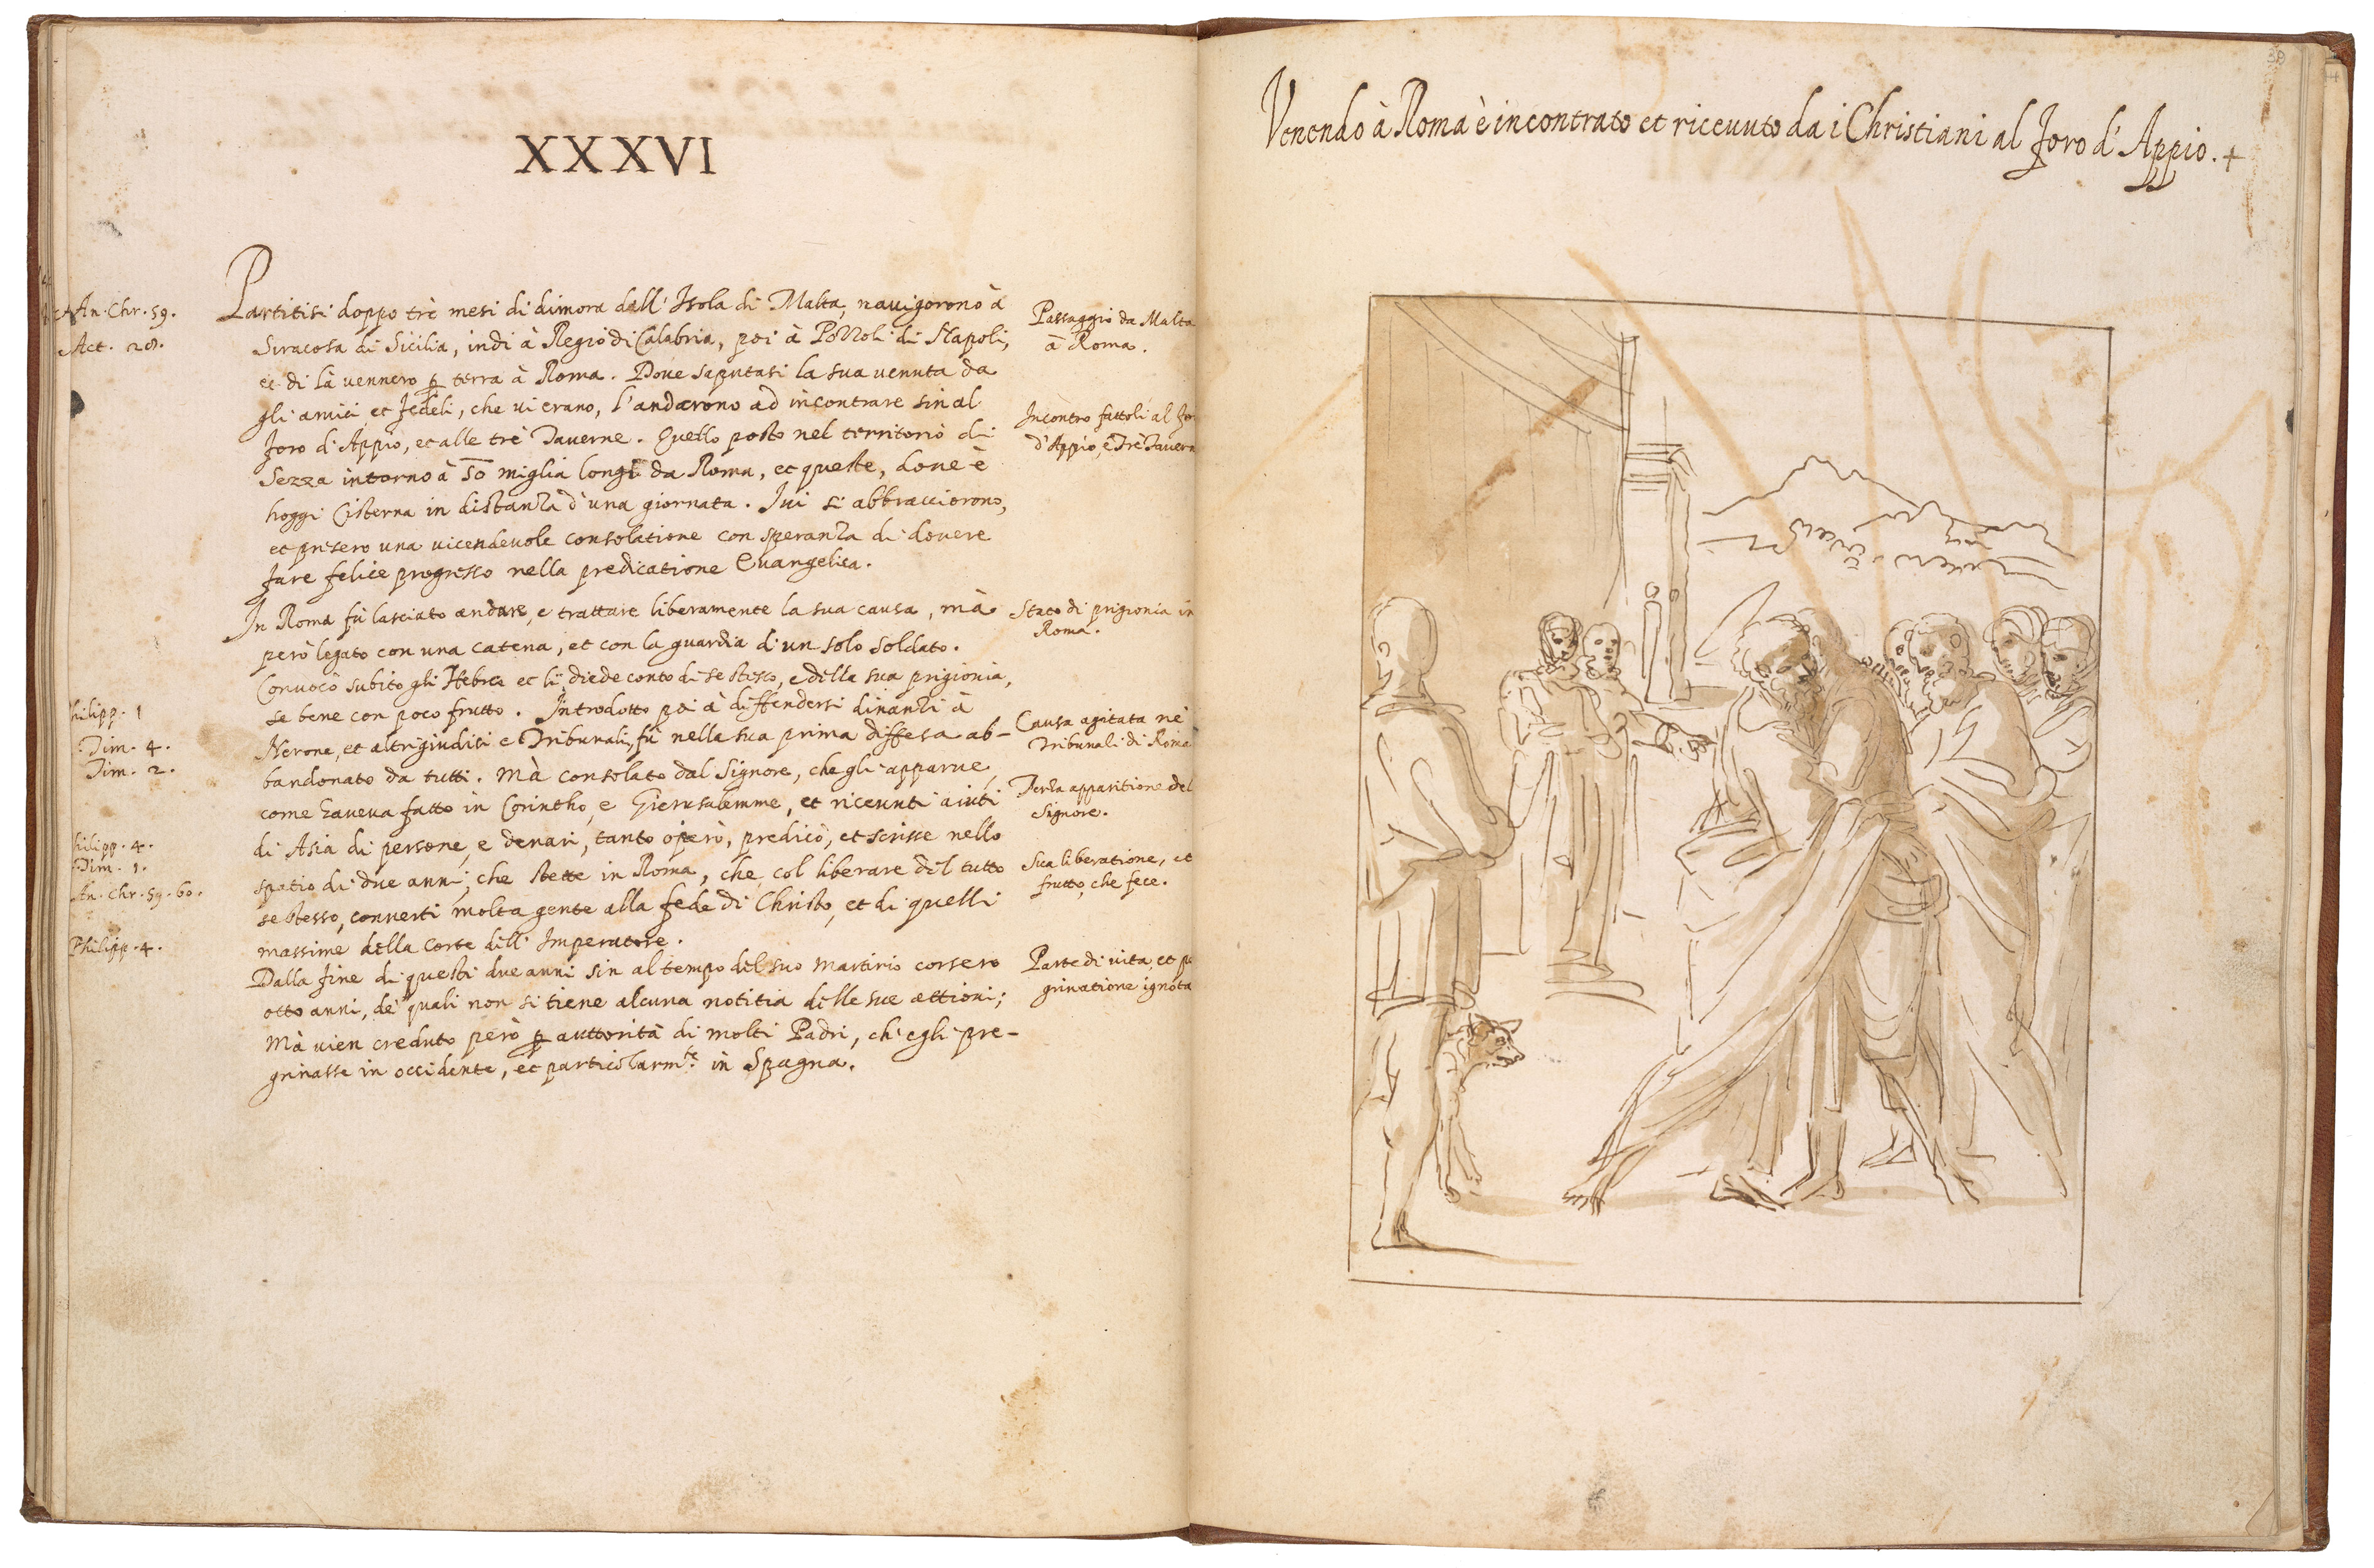 XXXVI
An. Chr. 59.
Act. 28.
Partitisi doppo trè mesi di dimora dall' Isola di Malta, nauigorono à
Siracosa di Sicilia, indi à Regio di Calabria, poi à Pozzoli di Napoli,
et di là uennero p terra à Roma. Doue saputasi la sua uenuta da
gli amici et fedeli, che ui erano, l'andarono ad incontrare sin al
foro d'Appio, et alle trè Tauerne. Quello posto nel territorio di
Sezza intorno à 50 miglia longi da Roma, et queste, doue è
hoggi Cisterna in distanza d'una giornata. Iui si abbracciorono,
et presero una uicendeuole consolatione con speranza di douere
fare felice progresso nella predicatione Euangelica.
In Roma fù lasciato andare, e trattare liberamente la sua causa, mà
però legato con una catena, et con la guardia d'un solo soldato.
Conuocò subito gli Hebrei et li diede conto di se stesso, e della sua prigionia,
se bene con poco frutto. Introdotto poi à diffendersi dinanzi à
Nerone, et altri giudici e Tribunali, fù nella sua prima diffesa ab-
bandonato da tutti. Mà consolato dal Signore, che gli apparue,
come haueua fatto in Corintho, e Gierusalemme, et riceuuti aiuti
di Asia di persone, e denari, tanto operò, predicò, et scrisse nello
spatio di due anni, che stette in Roma, che col liberare del tutto
se stesso, conuerti molta gente alla fede di Christo, et di quelli
massime della Corte dell' Imperatore.
Dalla fine di questi due anni sin al tempo del suo martirio corsero
otto anni, de' quali non si tiene alcuna notitia delle sue attioni;
Mà uien creduto però p auttorità di molti Padri, ch'egli pre-
grinasse in occidente, et particolarm.te in Spagna.
hilipp. 1
Tim. 4.
Tim. 2.
hilipp. 4.
Tim. 1.
An. Chr. 59. 60.
Philipp. 4.
Passaggio da Malta
à Roma.
Incontro fattoli al
d'Appio, e Tre Tauern
Stato di prigionia in
Roma.
Causa agitata ne'
Tribunali di Roma
Terza apparitione del
Signore.
Sua liberatione, et
frutto, che fece.
Parte di uita, et
grinatione ignota
Venendo à Roma è incontrato et riceuuto da i Christiani al foro d'Appio. +